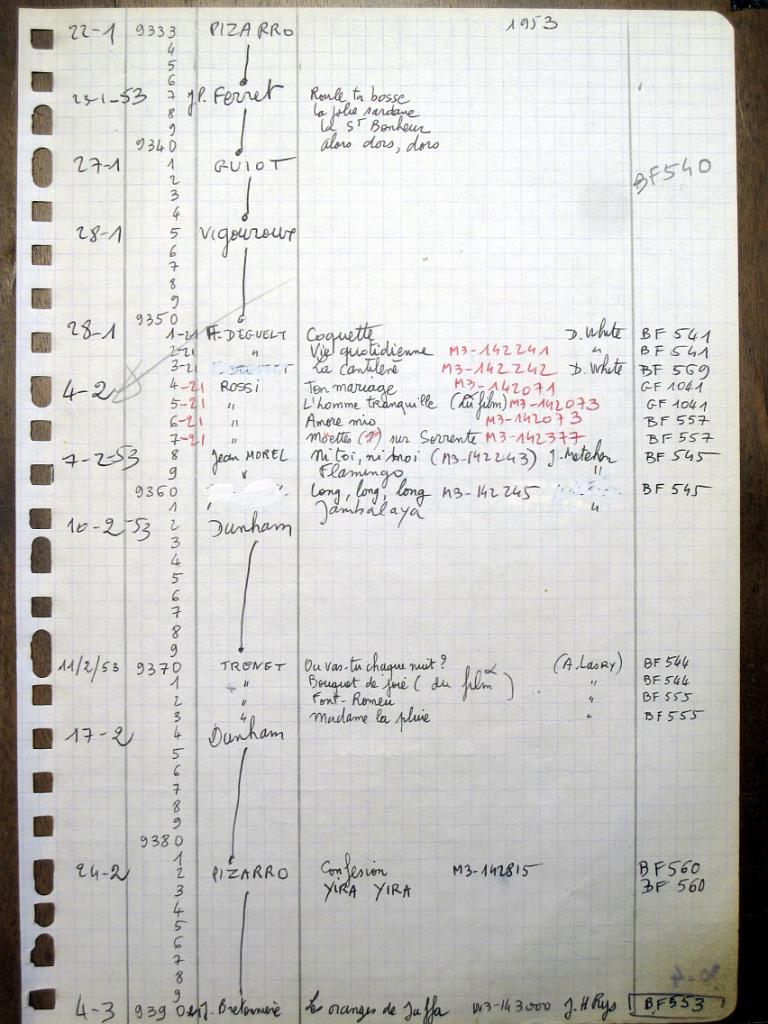 22-1 9333 PIZARRO 1953
4
5
6
23-1-53 7 J.P. Ferret Roule ta bosse
8 La jolie sardane
9 La St Bonheur
9340 alors dors, dors
27-1 1 GUIOT BF540
2
3
4
28-1 5 Vigouroux
6
7
8
9
9350
28-1 1-21 A. DEGUELT Coquette D. White BF 541
2-21 " Vie quotidienne M3-142241 " BF 541
3-21 La cantilène M3-142242 D. White BF 569
4-2 4-21 ROSSI Ton mariage M3-142071 GF 1041
5-21 " L'homme tranquille (du film) M3-142073 GF 1041
6-21 " Amore mio M3-142073 BF 557
7-21 " Moettes (?) sur Sorrente M3-142377 BF 557
7-2-53 8 Jean MOREL Ni toi, ni moi (M3-142243) J. Metehen BF 545
9 " Flamingo "
9360 Long, long, long M3-142245 " BF 545
1 Jambalaya "
10-2-53 2 Dunham
3
4
5
6
7
8
9
11/2/53 9370 TRENET Ou vas-tu chaque nuit? (A. Lasry) BF 544
1 " Bouquet de joie (du film) " BF 544
2 " Font-Romeu " BF 555
3 " Madame la pluie " BF 555
17-2 4 Dunham
5
6
7
8
9
9380
1
24-2 2 PIZARRO Confesion M3-142815 BF560
3 YIRA YIRA BF 560
4
5
6
7
8
9
4-3 9390 J. Bretonnière Les oranges de Jaffa M3-143000 J. H Rys BF553